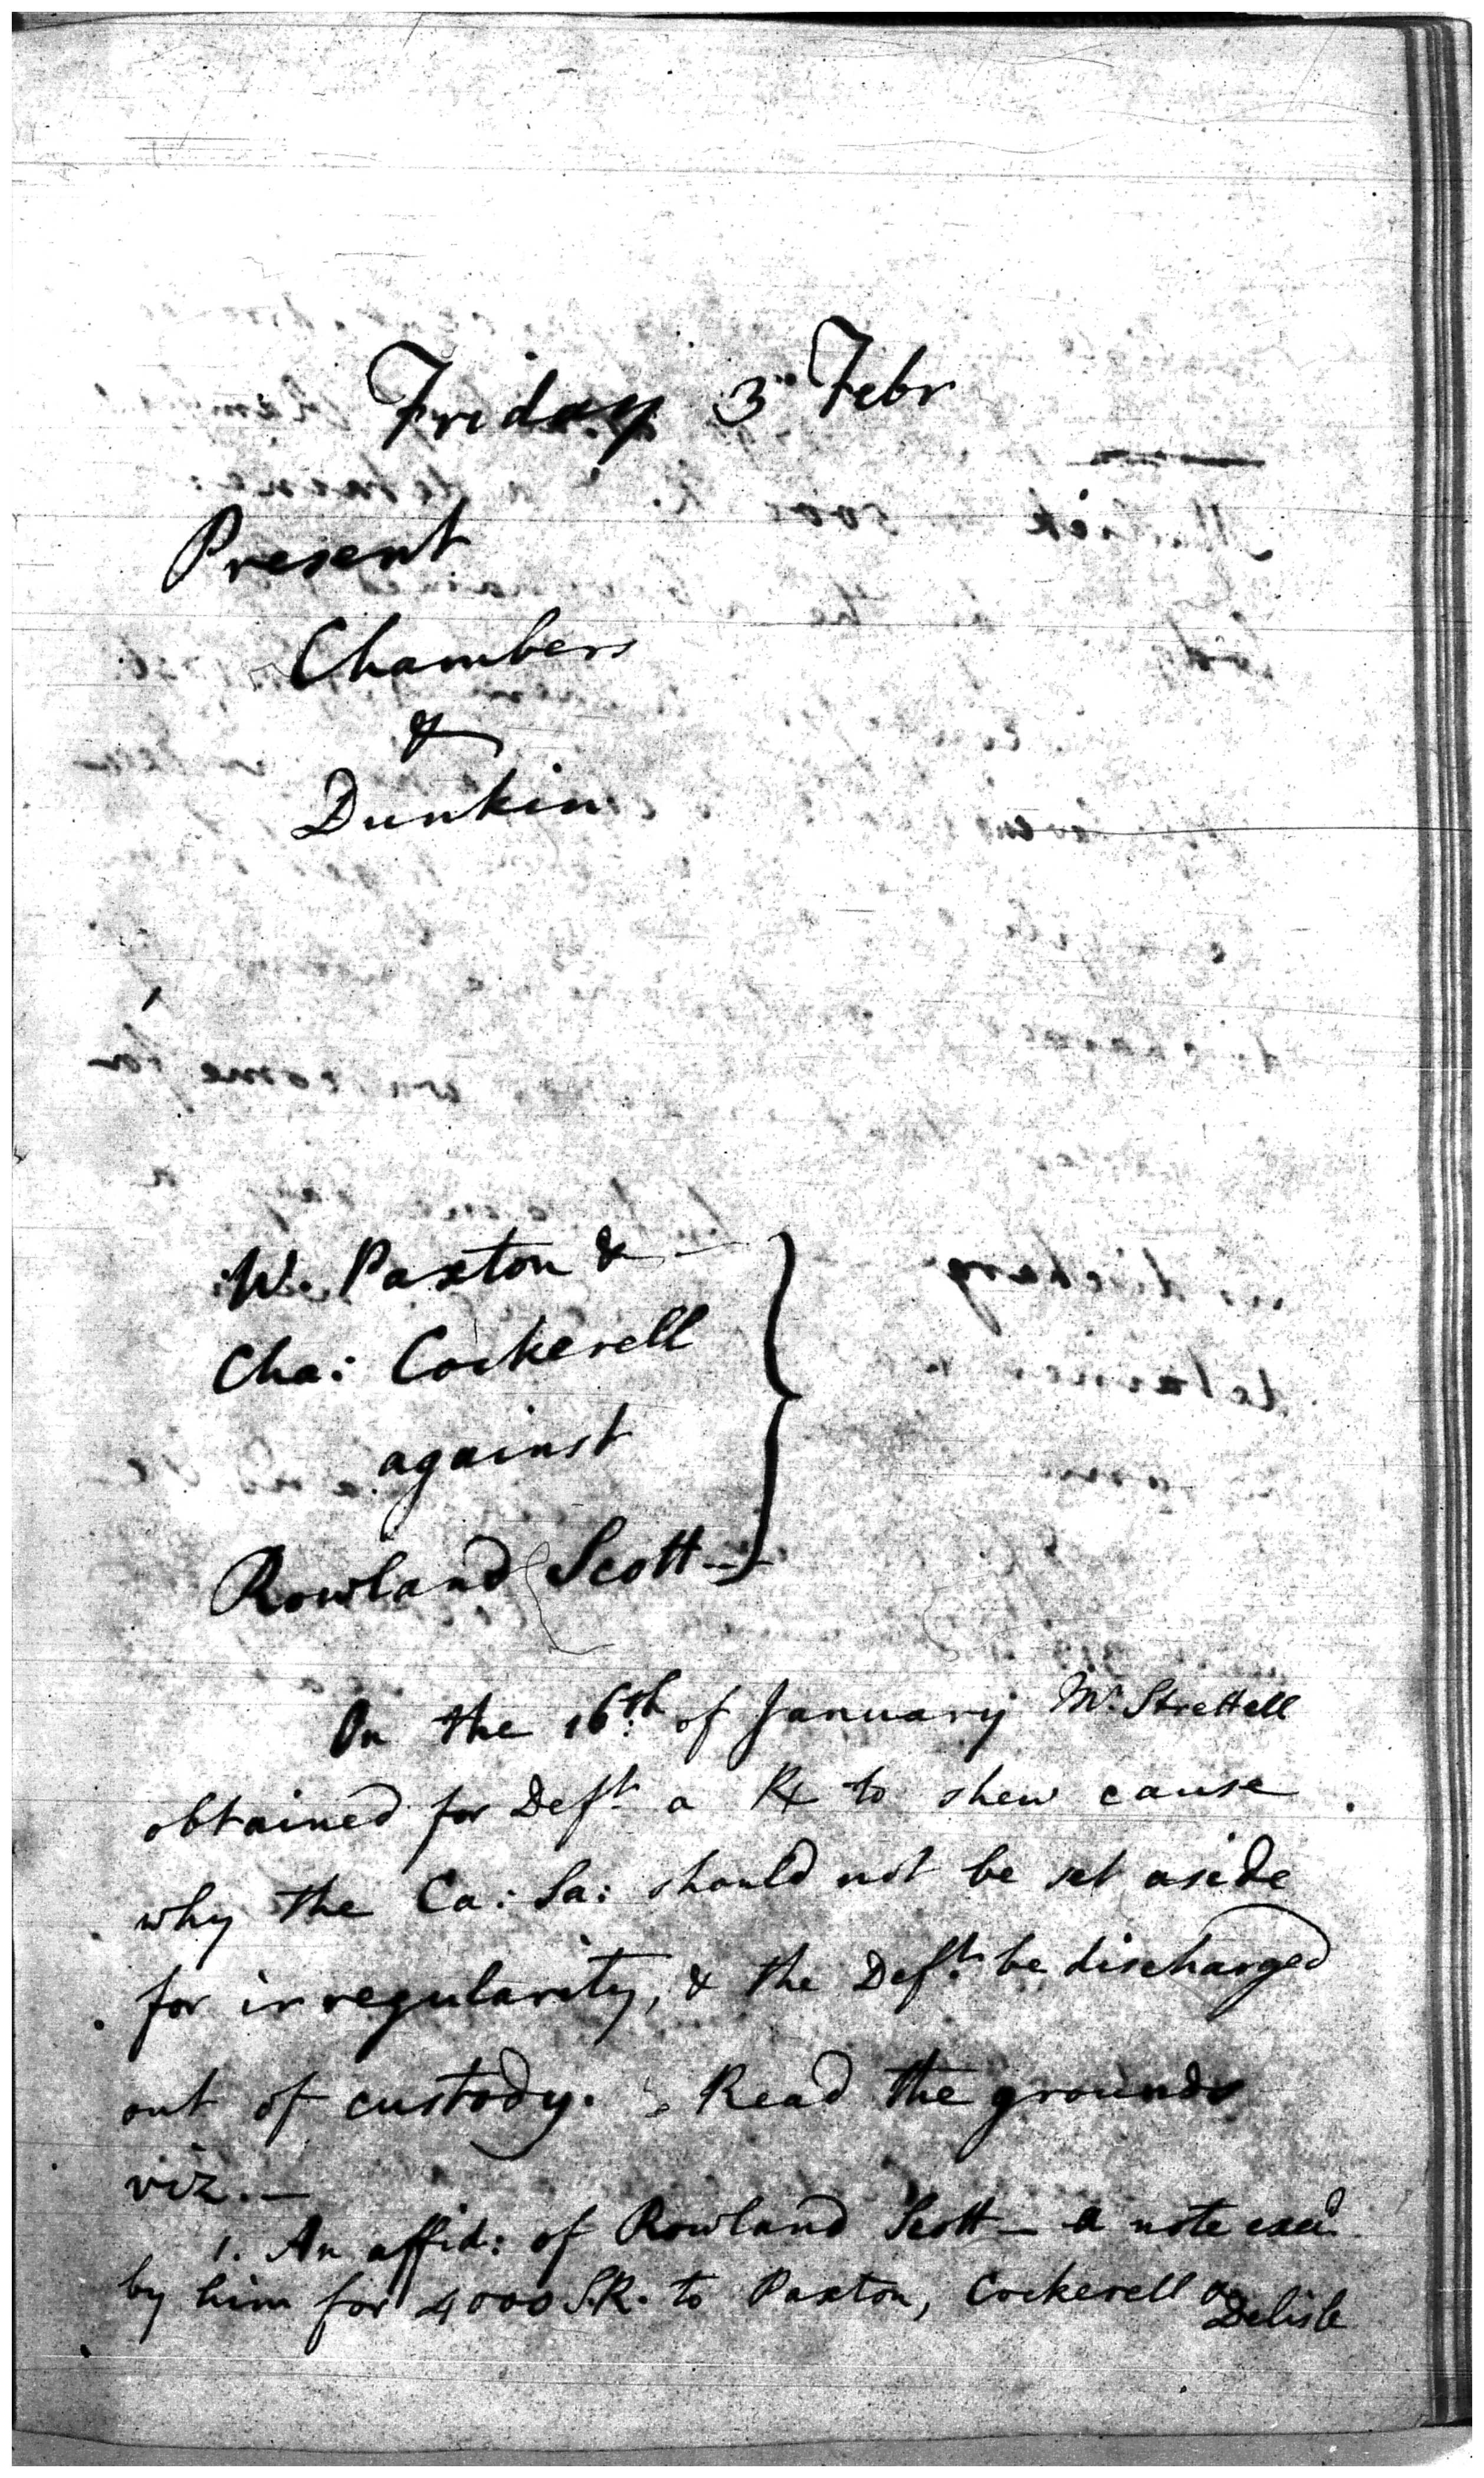 Friday 3 Febr
Present
Chambers
&
Dunkin
W. Paxton &
Cha: Cockerell
against
Rowland Scott
On the 16th of January Mr. Strettell
obtained for Deft. a R to shew cause
why the Ca: Sa: should not be set aside
for irregularity, & the Deft. be discharged
out of custody. Read the grounds
viz. —
1. An affid: of Rowland Scott — a note exed.
by him for 4000 S.R. to Paxton, Cockerell &
Delisle